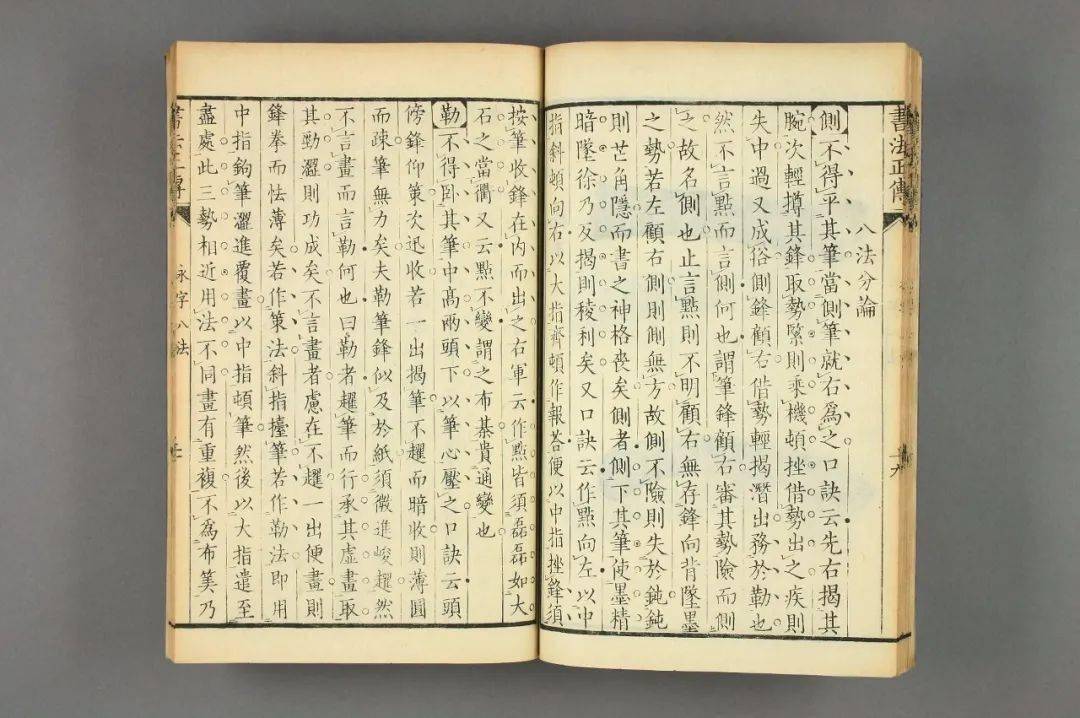 書法正傳
八法分論
側不得平其筆當側筆就右爲之口訣云先右揭其
腕次輕蹲其鋒取勢緊則乘機頓挫借勢出之疾則
失中過又成俗側鋒顧右借勢輕揭潛出務於勒也
然不言點而言側何也謂筆鋒顧右審其勢險而側
之故名側也止言點則不明顧右無存鋒向背墜墨
之勢若左顧右側則側無方故側不險則失於鈍鈍
則芒角隱而書之神格喪矣側者側下其筆使墨精
暗墜徐乃反揭則稜利矣又口訣云作點向左以中
指斜頓向右以大指齊頓作報荅便以中指挫鋒須
六
按筆收鋒在內而出之右軍云作點皆須磊磊如大
石之當衢又云點不變謂之布棊貴通變也
勒不得臥其筆中高兩頭下以筆心壓之口訣云頭
傍鋒仰策次迅收若一出揭筆不趯而暗收則薄圓
而疎筆無力矣夫勒筆鋒似及於紙須微進峻趯然
不言畫而言勒何也曰勒者趯筆而行承其虛畫取
其勁澀則功成矣不言畫者慮在不趯一出便畫則
鋒拳而怯薄矣若作策法斜指擡筆若作勒法即用
中指鉤筆澀進覆畫以中指頓筆然後以大指遣至
盡處此三勢相近用法不同畫有重複不爲布筭乃
永字八法